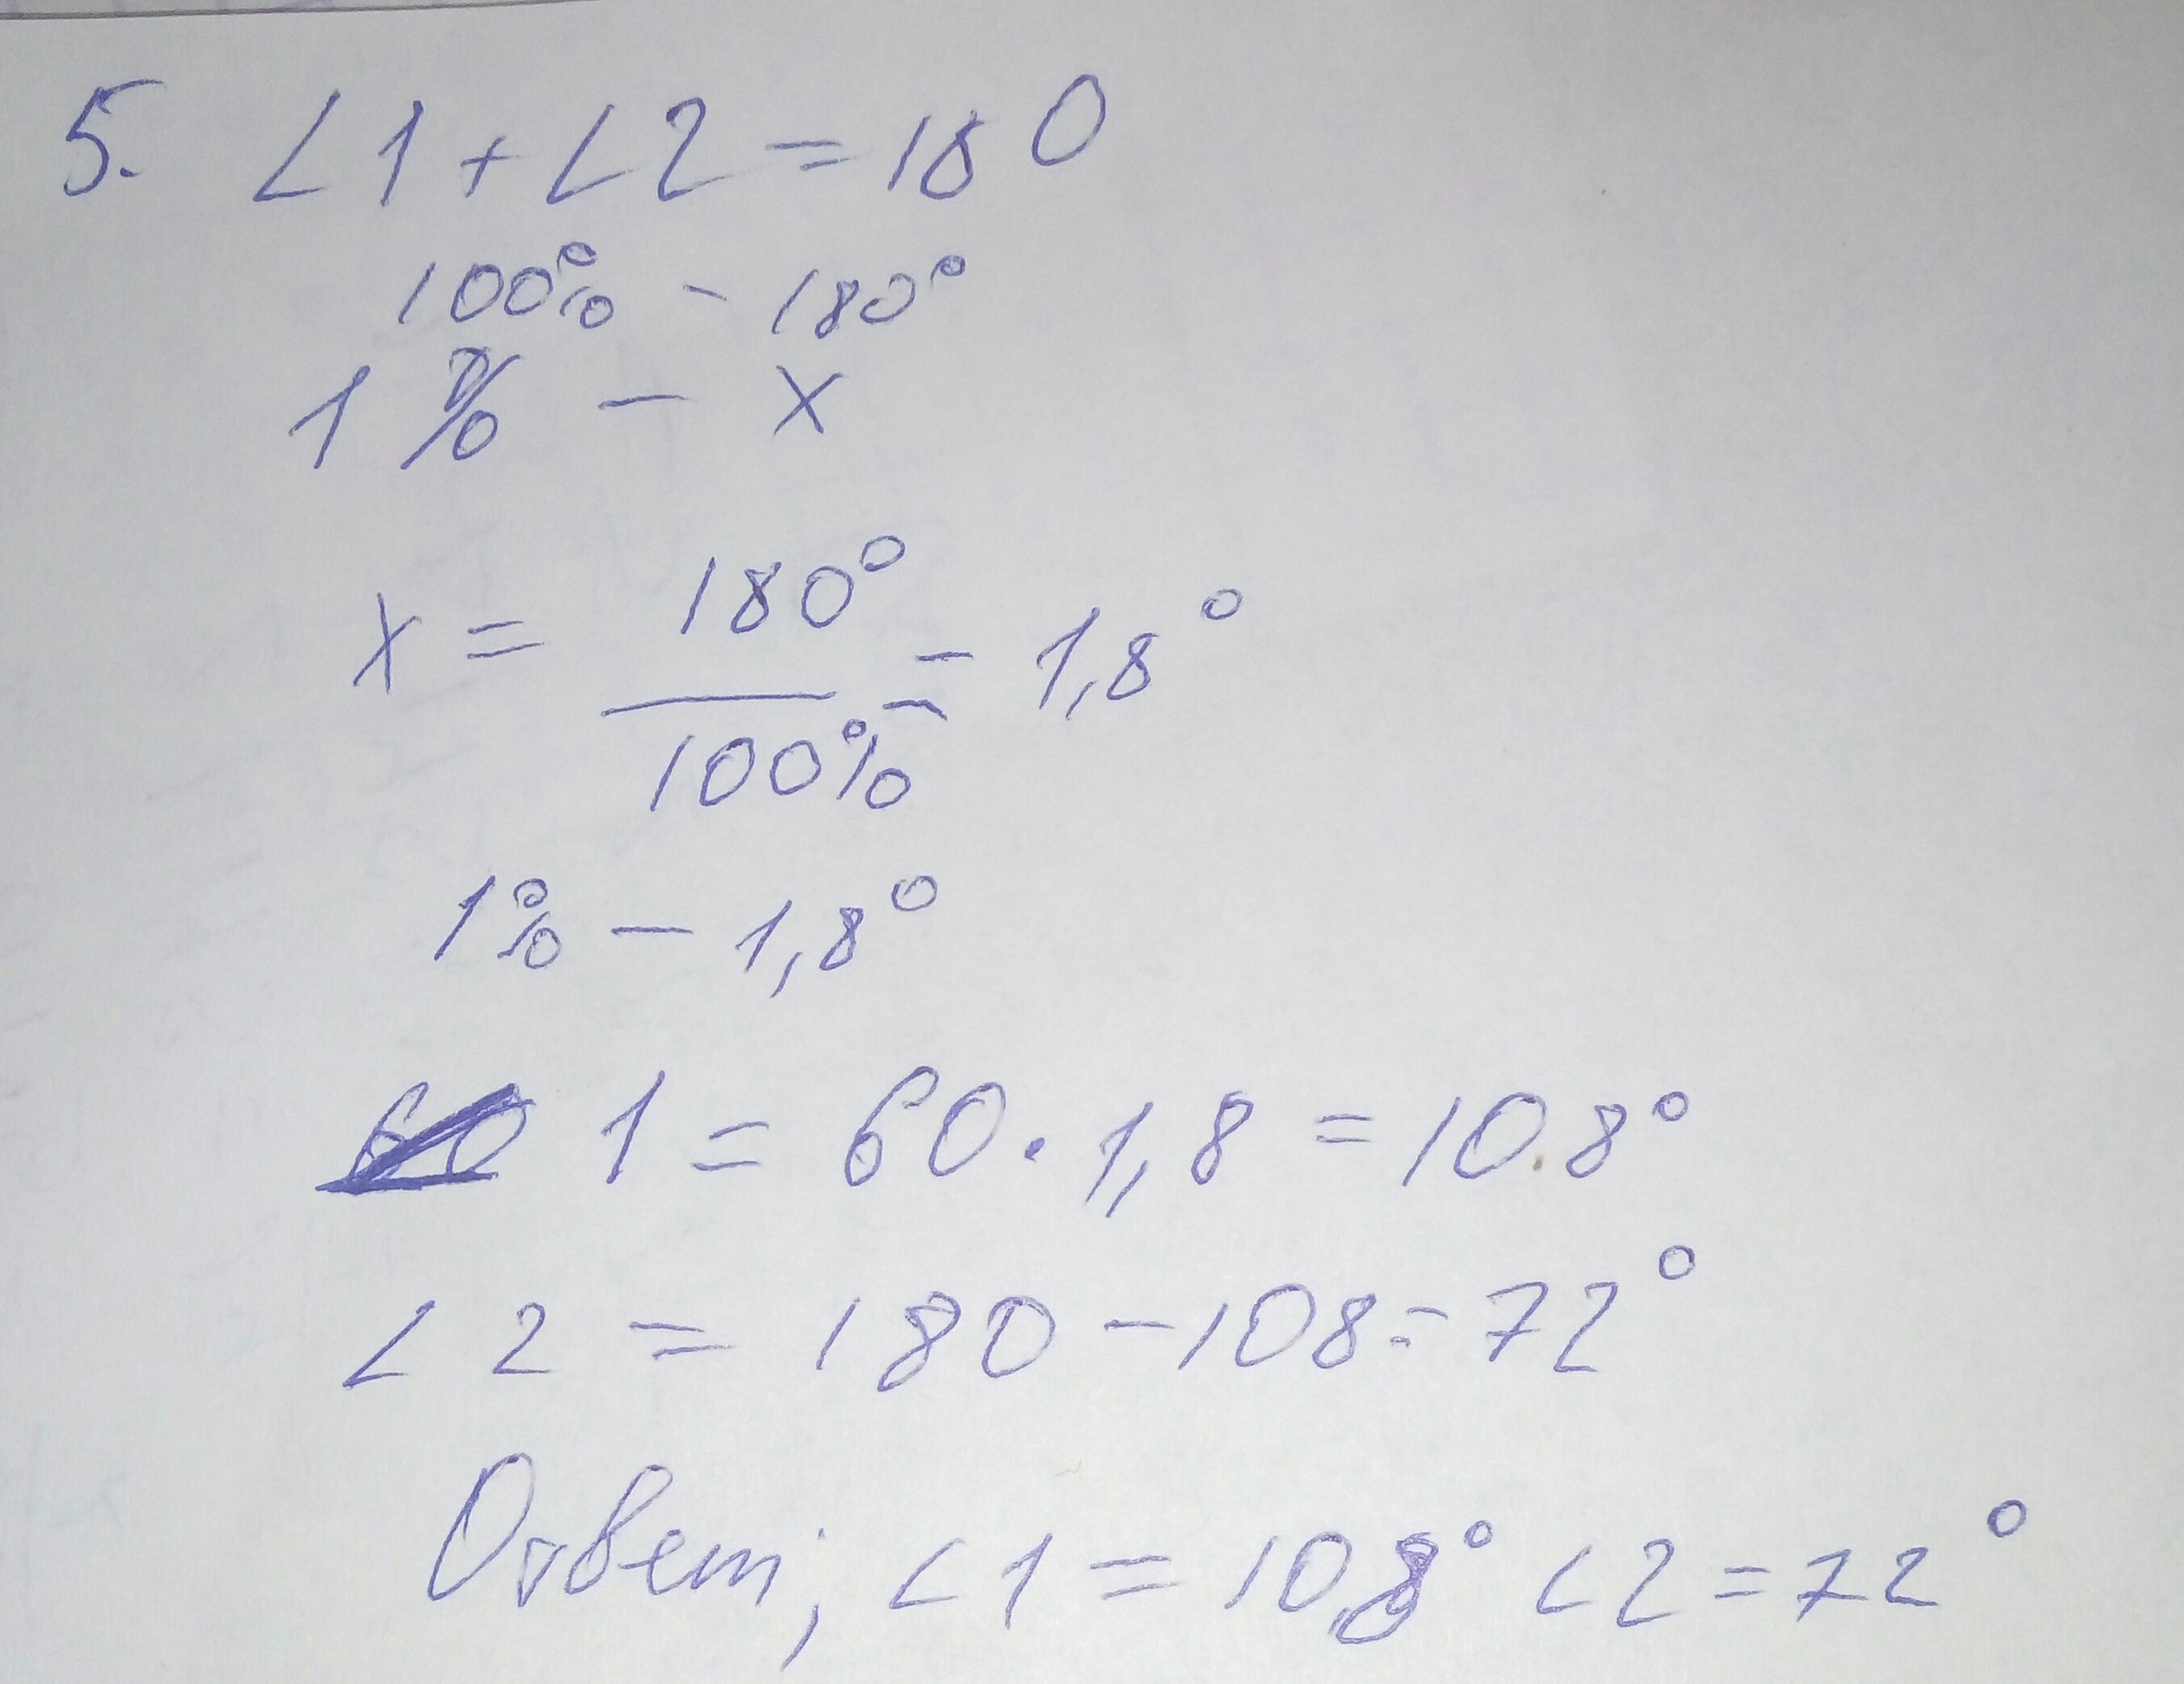 5. ∠1 + ∠2 = 180
100% - 180°
1% - x
x = 180° / 100% = 1,8°
1% - 1,8°
1 = 60 · 1,8 = 108°
∠2 = 180 - 108 = 72°
Ответ; ∠1 = 108° ∠2 = 72°